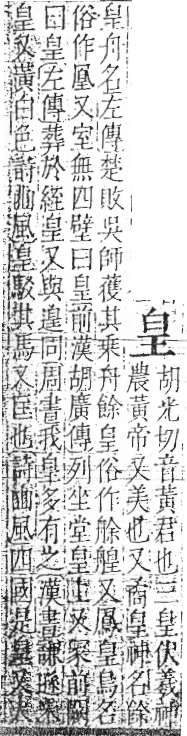 皇
胡光切音黃君也三皇伏羲神
農黃帝又美也又矞皇神名餘
皇舟名左傳楚敗吳師獲其乘舟餘皇俗作艅艎又鳳皇鳥名
俗作凰又室無四壁曰皇前漢胡廣傳列坐堂皇上又冢前闕
曰皇左傳葬於絰皇又與遑同周書我皇多有之漢書
皇又黃白色詩豳風皇駁其馬又匡也詩豳風四國是皇又